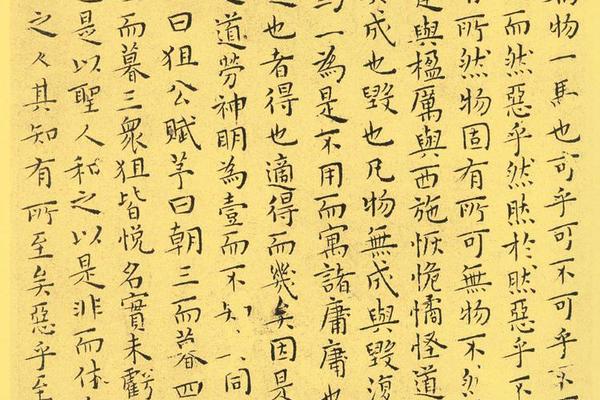 物一馬也可乎可不可乎不
而然惡乎然然於然惡乎不
有所然物固有所可無物不然
與楹厲與西施恢恑憰怪道
成也毀也凡物無成與毀復
一為是不用而寓諸庸庸也
也者得也適得而幾矣因是
道勞神明為壹而不知同
曰狙公賦芧曰朝三而暮四
而暮三衆狙皆悅名實未虧
是以聖人和之以是非而休
之人其知有所至矣惡乎至